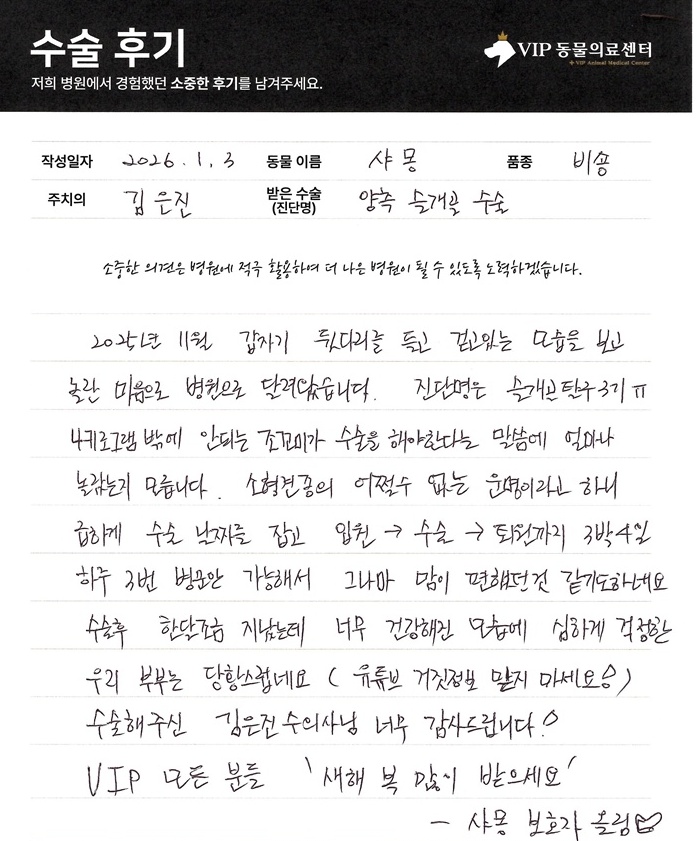 수술 후기
저희 병원에서 경험했던 소중한 후기를 남겨주세요.
VIP 동물의료센터
VIP Animal Medical Center
작성일자 2026. 1. 3 동물 이름 샤몽 품종 비숑
주치의 김은진 받은 수술 (진단명) 양측 슬개골 수술
소중한 의견은 병원에 적극 활용하여 더 나은 병원이 될 수 있도록 노력하겠습니다.
2025년 11월 갑자기 뒷다리를 들고 걷고있는 모습을 보고
놀란 마음으로 병원으로 달려왔습니다. 진단명은 슬개골탈구3기 ㅠ
4키로그램 밖에 안되는 쪼꼬미가 수술을 해야한다는 말씀에 얼마나
놀랐는지 모릅니다. 소형견종의 어쩔수 없는 운명이라고 하니
급하게 수술 날짜를 잡고 입원 → 수술 → 퇴원까지 3박4일
하루 3번 병문안 가능해서 그나마 맘이 편했던것 같기도하네요
수술후 한달조금 지났는데 너무 건강해진 모습에 심하게 걱정한
우리 부부는 당황스럽네요 ( 유튜브 거짓정보 믿지 마세요! )
수술해주신 김은진 수의사님 너무 감사드립니다!
VIP 모든 분들 '새해 복 많이 받으세요'
- 샤몽 보호자 올림♡